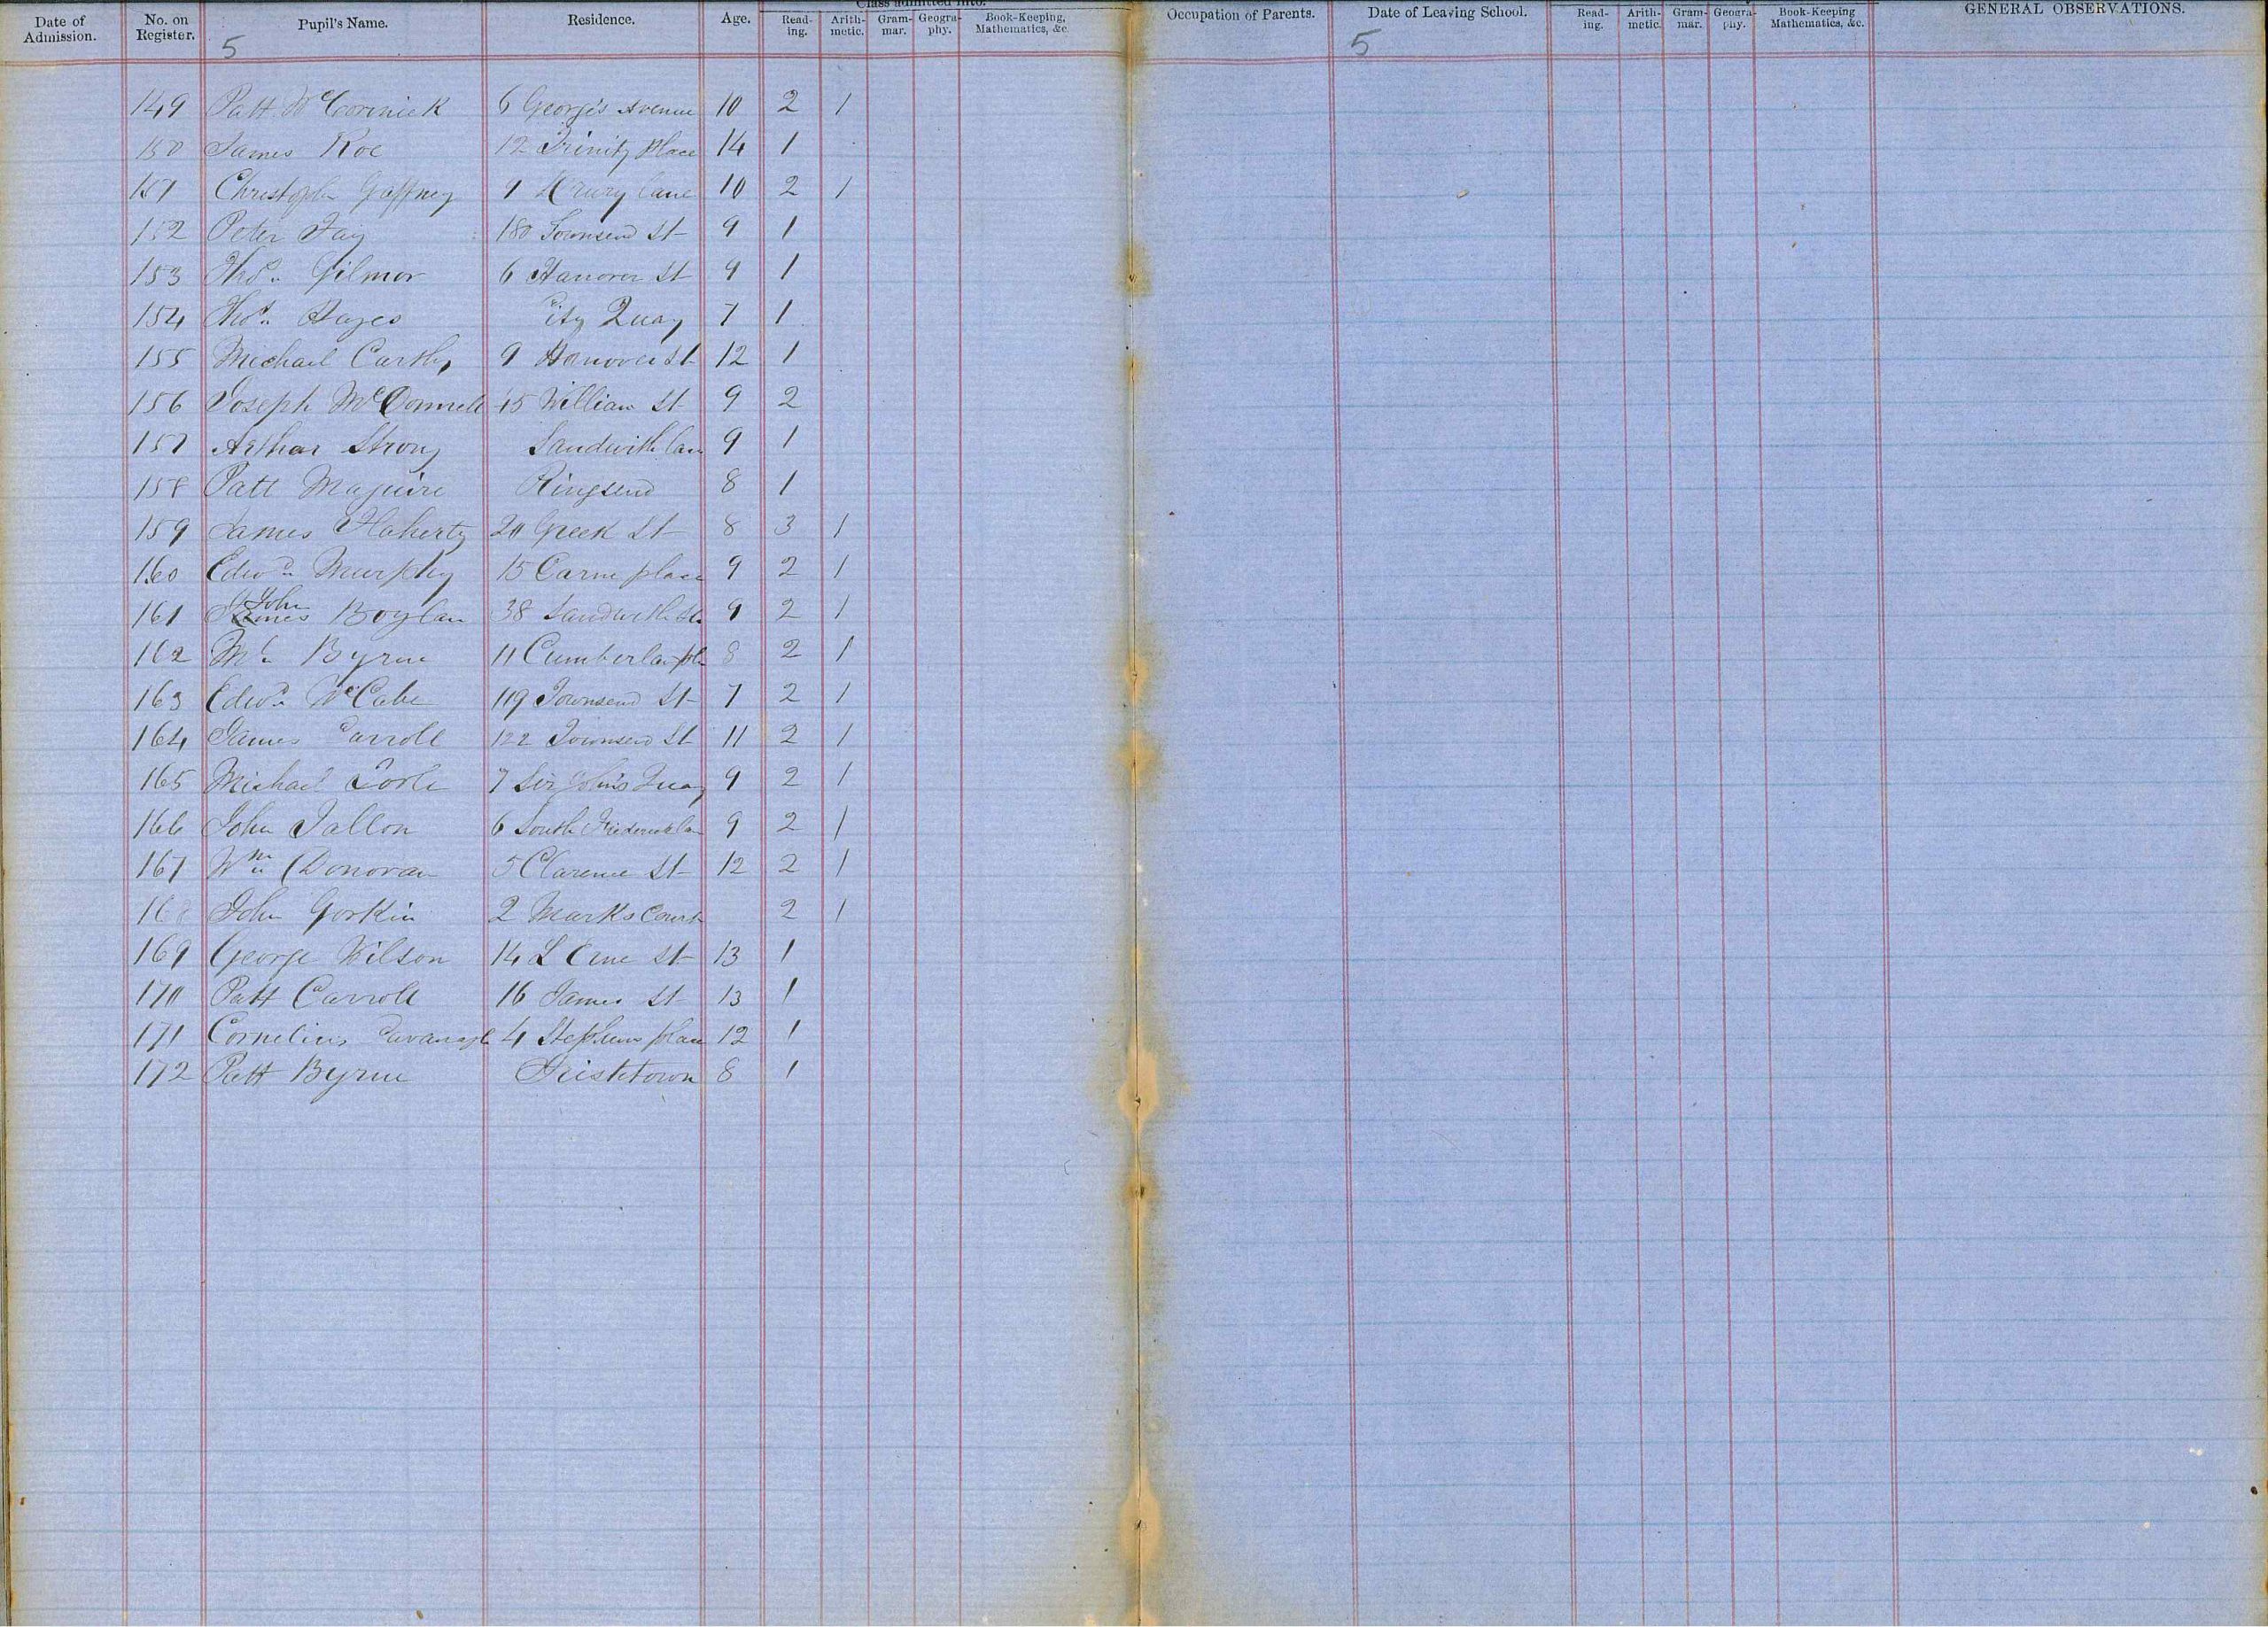 Class admitted into.
Date of Admission. No. on Register. Pupil's Name. Residence. Age. Read-ing. Arith-metic. Gram-mar. Geogra-phy. Book-Keeping, Mathematics, &c Occupation of Parents. Date of Leaving School. Read-ing. Arith-metic. Gram-mar. Geogra-phy. Book-Keeping Mathematics, &c. GENERAL OBSERVATIONS.
5 5
149 Patt McCormick 6 George's Avenue 10 2 1
150 James Roe 12 Trinity Place 14 1
151 Christopher Gaffney 9 Drury Lane 10 2 1
152 Peter Fay 180 Townsend St 9 1
153 Thos. Gilmor 6 Hanover St 9 1
154 Thos. Hayes City Quay 7 1
155 Michael Carthy 9 Hanover St 12 1
156 Joseph McDonnell 45 William St 9 2
157 Arthur Strong Sandwith lane 9 1
158 Patt Maguire Ringsend 8 1
159 James Flaherty 20 Greek St 8 3 1
160 Edwd. Murphy 15 Carne place 9 2 1
161 James John Boylan 38 Sandwith St. 9 2 1
162 Byrne 11 Cumberlan pl 8 2 1
163 Edwd. McCabe 119 Townsend St 7 2 1
164 James Carroll 122 Townsend St 11 2 1
165 Michael Toole 7 Sir John's Quay 9 2 1
166 John Tallon 6 South Frederick lan 9 2 1
167 Wm. Donovan 5 Clarence St 12 2 1
168 John Gorkin 2 Marks Court 2 1
169 George Wilson 14 L St 13 1
170 Patt Carroll 16 James St 13 1
171 Cornelius Cavanagh 4 Stephens place 12 1
172 Patt Byrne Irishtown 8 1